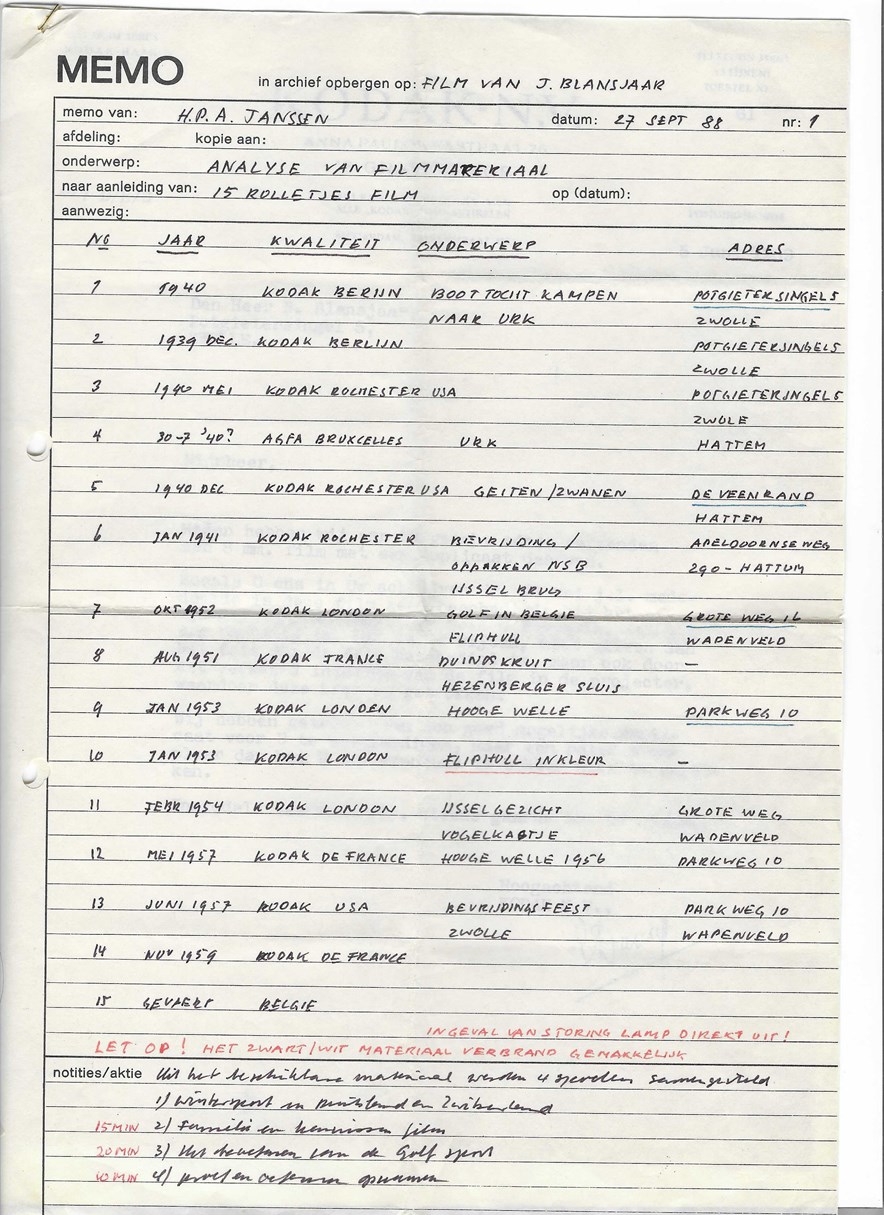 MEMO in archief opbergen op: FILM VAN J. BLANSJAAR
memo van: H.P.A. JANSSEN datum: 27 SEPT 88 nr: 1
afdeling: kopie aan:
onderwerp: ANALYSE VAN FILMMAREKIAAL
naar aanleiding van: 15 ROLLETJES FILM op (datum):
aanwezig:
NO JAAR KWALITEIT ONDERWERP ADRES
1 1940 KODAK BERIJN BOOTTOCHT KAMPEN POTGIETERSINGEL 5
NAAR URK ZWOLLE
2 1939 DEC. KODAK BERLIJN POTGIETERSINGEL 5
ZWOLLE
3 1940 MEI KODAK ROCHESTER USA POTGIETERSINGEL 5
ZWOLE
4 30-7 '40? AGFA BRUXCELLES URK HATTEM
5 1940 DEC KODAK ROCHESTER USA GEITEN/ZWANEN DE VEENRAND
HATTEM
6 JAN 1941 KODAK ROCHESTER BEVRIJDING / APELDOORNSE WEG
OPPAKKEN NSB 290 - HATTUM
IJSSEL BRUG
7 OKT 1952 KODAK LONDON GOLF IN BELGIE GROTE WEG 16
FLIPHULL WAPENVELD
8 AUG 1951 KODAK FRANCE DUINDSKRUIT –
HEZENBERGER SLUIS
9 JAN 1953 KODAK LONDEN HOOGE WELLE PARKWEG 10
10 JAN 1953 KODAK LONDON FLIPHULL IN KLEUR –
11 FEBR 1954 KODAK LONDON IJSSELGEZICHT GROTE WEG
VOGELKASTJE WAPENVELD
12 MEI 1957 KODAK DE FRANCE HOOGE WELLE 1956 PARKWEG 10
13 JUNI 1957 KODAK USA BEVRIJDINGSFEEST PARKWEG 10
ZWOLLE WAPENVELD
14 NOV 1959 KODAK DE FRANCE
15 GEVAERT BELGIE
IN GEVAL VAN STORING LAMP DIREKT UIT!
LET OP! HET ZWART/WIT MATERIAAL VERBRAND GEMAKKELIJK
notities/aktie Uit het beschikbare materiaal werden 4 spoelen samengesteld
1) wintersport in Duitsland en Zwitserland
15 MIN 2) Familie en kennissen film
20 MIN 3) Het beoefenen van de Golf sport
10 MIN 4) proef en opnamen